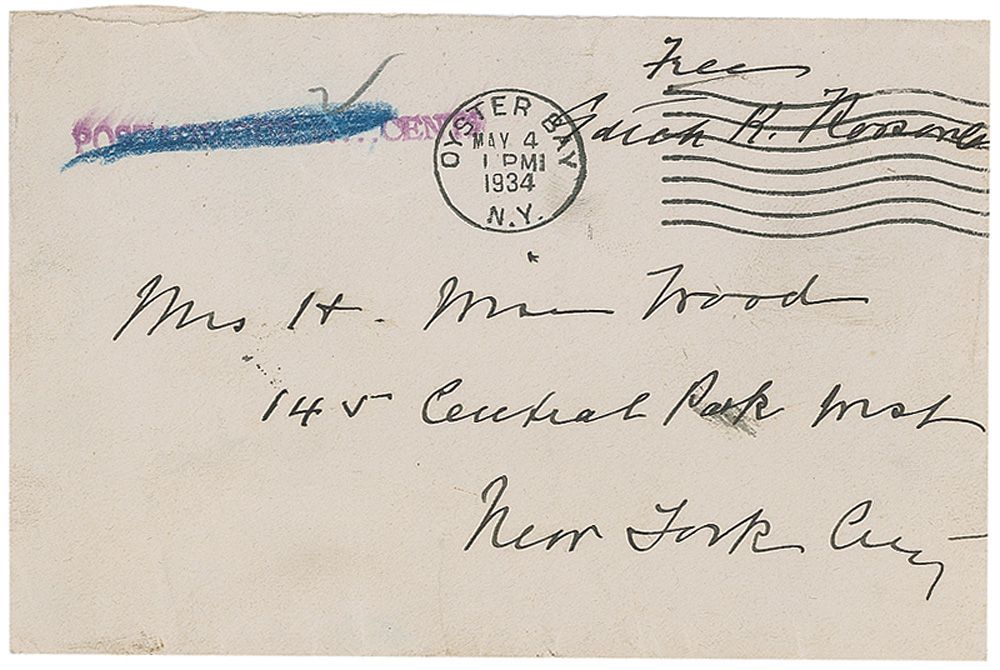 Free
Edith K. Roosevelt
POSTAGE DUE CENTS
OYSTER BAY
MAY 4
1 PM
1934
N.Y.
Mrs H. Wood
145 Central Park West
New York City